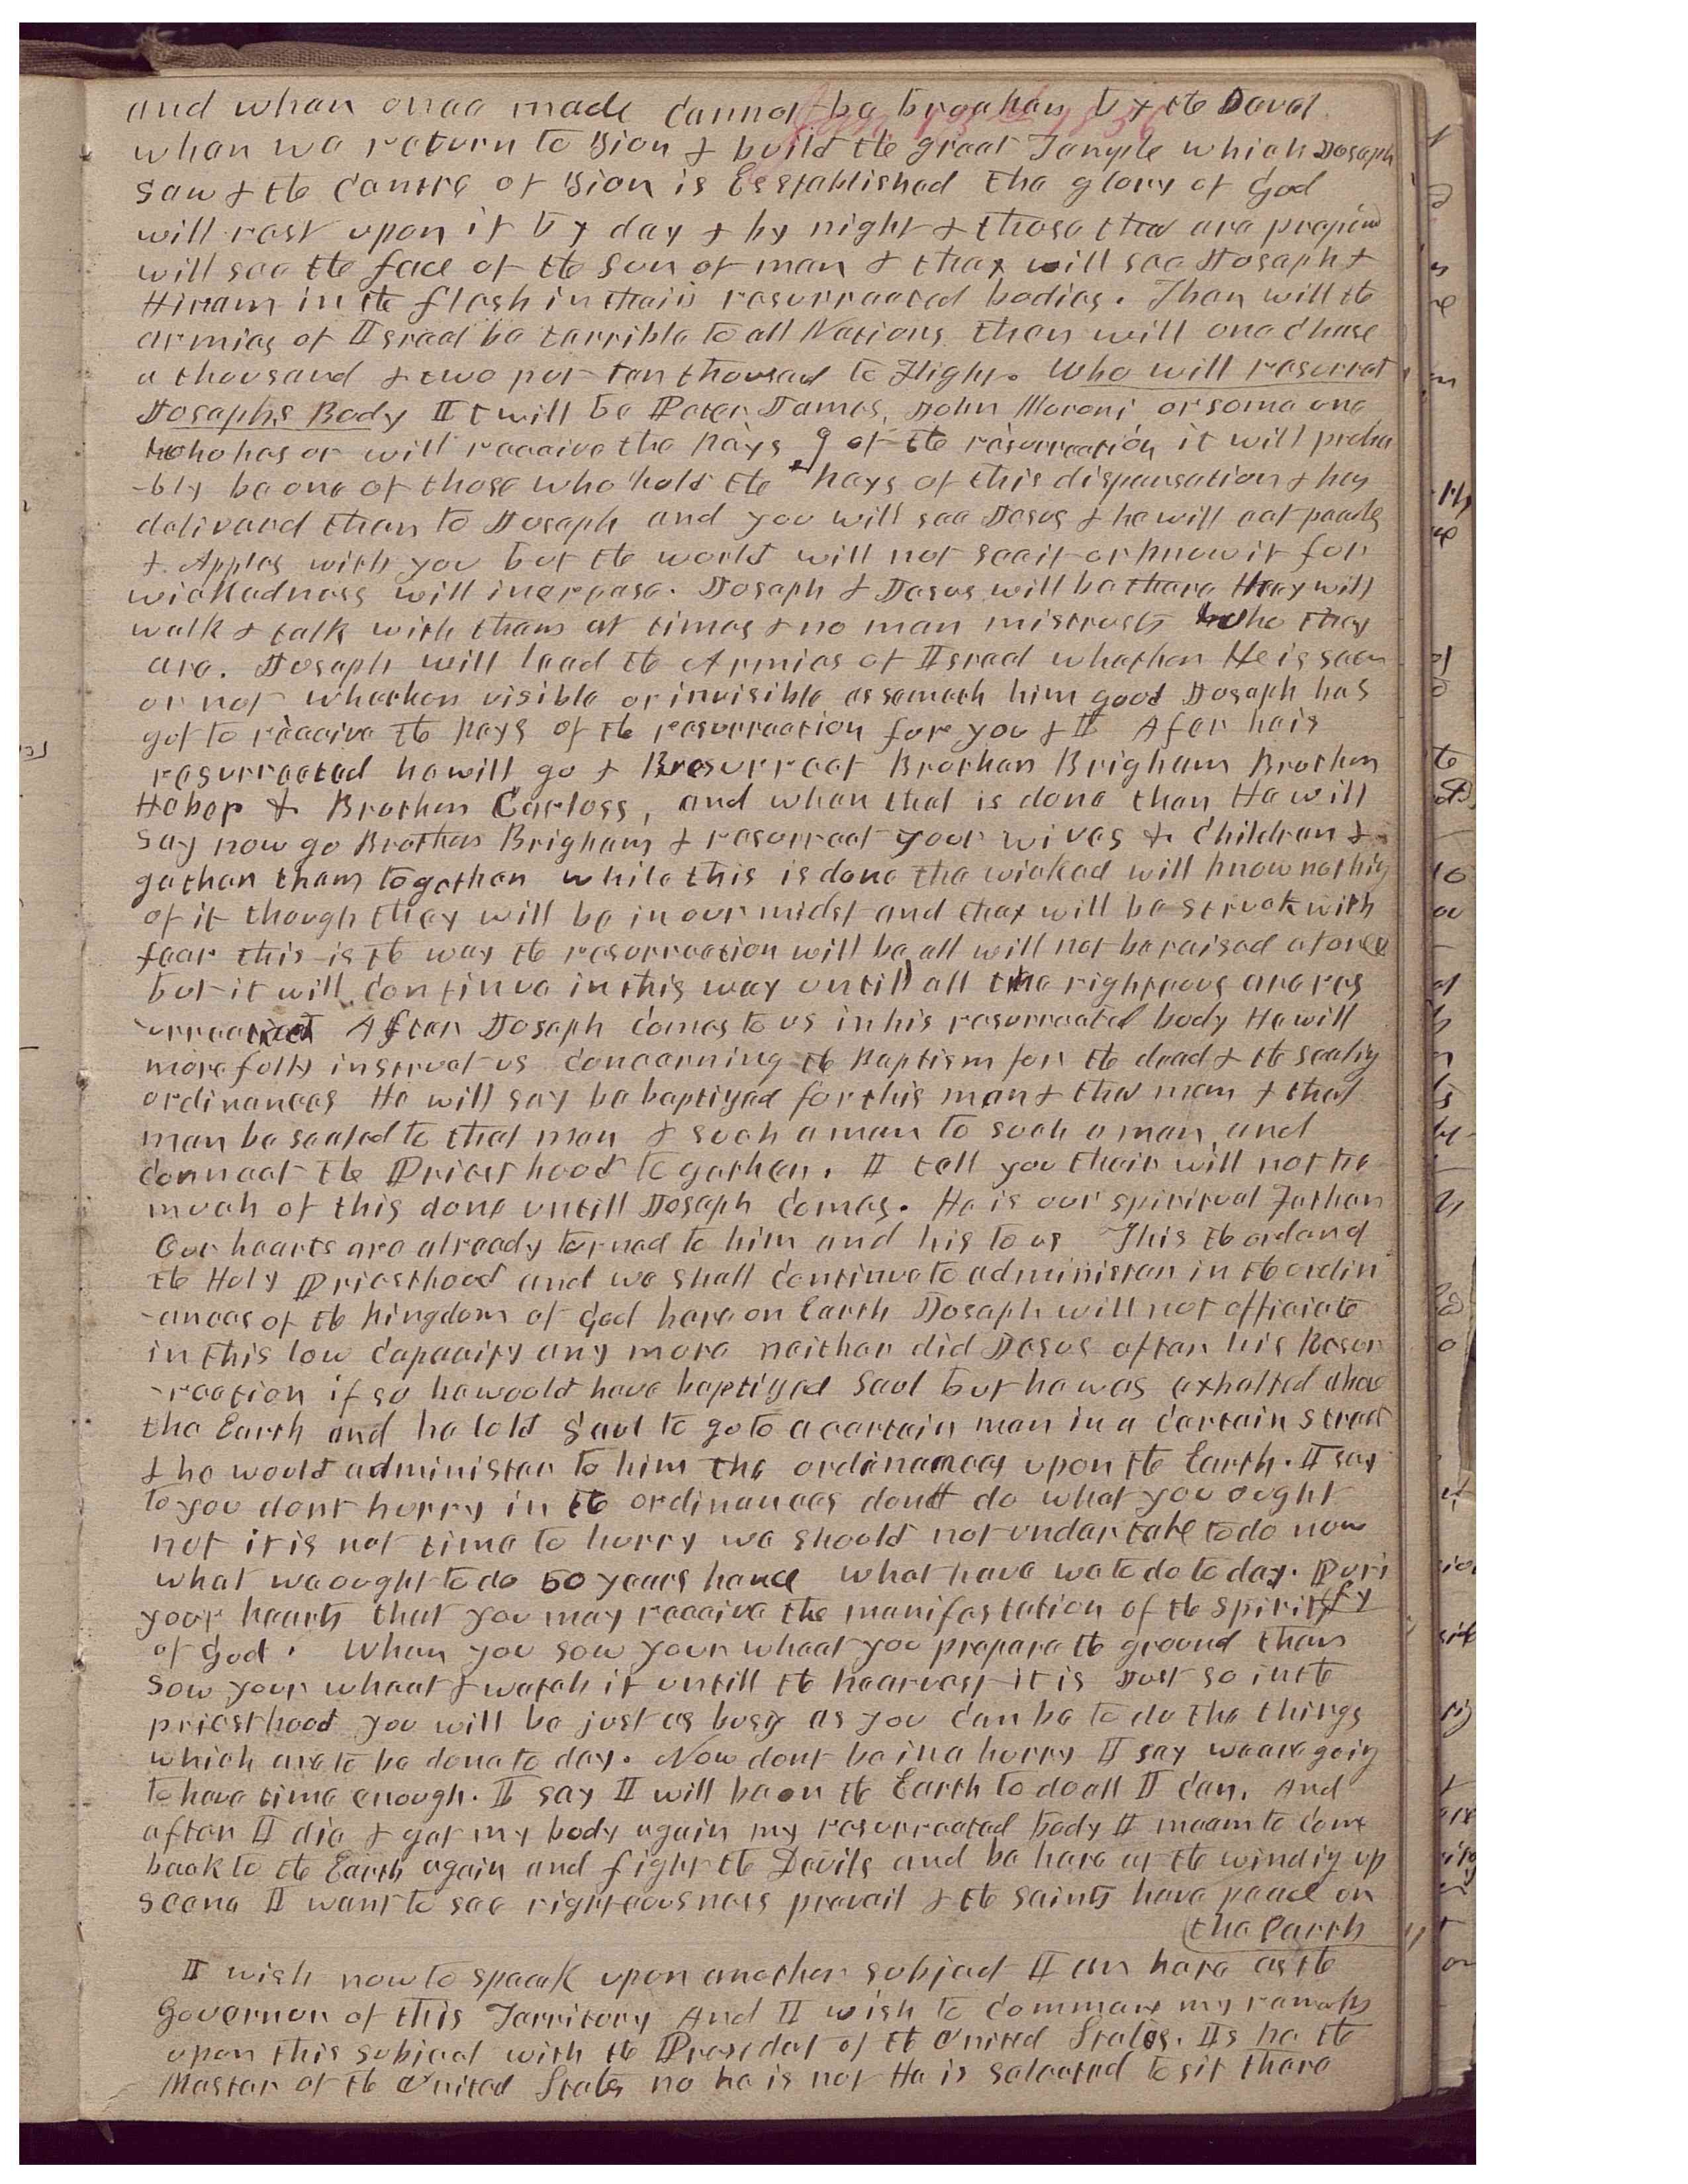 and when once made cannot be broaken by the Devel
when we return to Zion & build the great Temple which Joseph
saw & the Centre of Zion is Esstablished the glory of God
will rest upon it by day & by night & those that are prepared
will see the face of the Son of man & they will see Joseph &
Hiram in the flesh in their resurrected bodies. Then will the
armies of Israel be terrible to all Nations then will one chase
a thousand & two put ten thousad to Flight. Who will resurrect
Josephs Body It will be Peter, James, John Moroni or some one
who has or will receive the keys of the resurrection it will proba
-bly be one of those who hold the keys of this dispensation & has
deliverd them to Joseph and you will see Jesus & he will eat peaches
& Apples with you but the world will not see it or know it for
wickedness will increase. Joseph & Jesus will be there they will
walk & talk with them at times & no man mistrusts who they
are. Joseph will lead the Armies of Israel whether He is seen
or not whether visible or invisible as seemeth him good Joseph has
got to receive the keys of the resurrection for you & I After he is
resurrected he will go & resurrect Brother Brigham Brother
Heber & Brother Carloss, and when that is done then He will
say now go Brother Brigham & resurrect your wives & children &
gather them together while this is done the wicked will know nothig
of it though they will be in our midst and they will be struck with
fear this is the way the resurrection will be all will not be raised at once
but it will continue in this way untill all the righteous are res
-urrected After Joseph comes to us in his resurrected body He will
more fully instruct us concerning the Baptism for the dead & the sealig
ordinances He will say be baptized for this man & that man & that
man be sealed to that man & such a man to such a man, and
connect the Priesthood together. I tell you their will not be
much of this done untill Joseph comes. He is our spiritual Father
Our hearts are already turned to him and his to us This the order of
the Holy Priesthood and we shall continue to administer in the ordin
-ances of the kingdom of God here on Earth Joseph will not officiate
in this low capacity any more neither did Jesus after his Resur
-rection if so he would have baptized Saul but he was exhalted above
the Earth and he told Saul to go to a certain man in a certain street
& he would administer to him the ordinances upon the Earth. I say
to you dont hurry in the ordinances dont do what you ought
not it is not time to hurry we should not undertake to do now
what we ought to do 50 years hence what have we to do to day. Puri
your hearts that you may receive the manifestation of the spirit fy
of God. When you sow your wheat you prepare the ground then
sow your wheat & watch it untill the hearvest it is Just so in the
priesthood you will be just as busy as you can be to do the things
which are to be done to day. Now dont be in a hurry I say we are goig
to have time enough. I say I will be on the Earth to do all I can. And
after I die & get my body again my resurrected body I mean to come
back to the Earth again and fight the Devils and be here at the windig up
scene I want to see righteousness prevail & the saints have peace on
the Earth
I wish now to speak upon another subject I am here as the
Governor of this Territory And I wish to commence my remarks
upon this subject with the Presedet of the United States. Is he the
Master of the United States no he is not He is selected to sit there